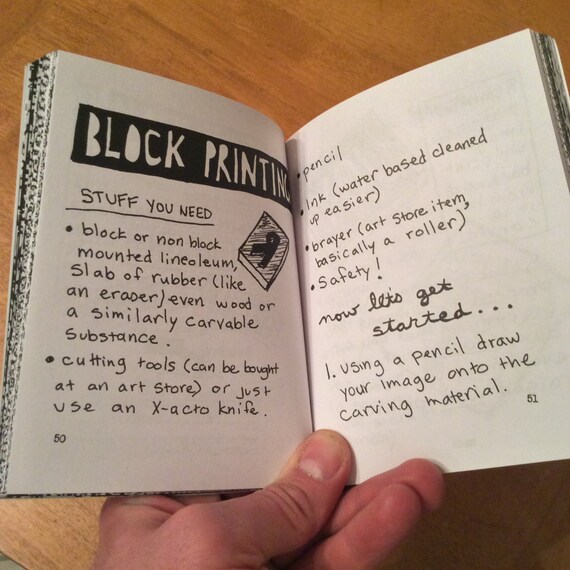 BLOCK PRINTING
STUFF YOU NEED
• block or non block
mounted lineoleum,
Slab of rubber (like
an eraser) even wood or
a similarly carvable
substance.
• cutting tools (can be bought
at an art store) or just
use an X-acto knife.
50
• pencil
• Ink (water based cleaned
up easier)
• brayer (art store item,
basically a roller)
• Safety!
now let's get
started...
1. Using a pencil draw
your image onto the
carving material.
51